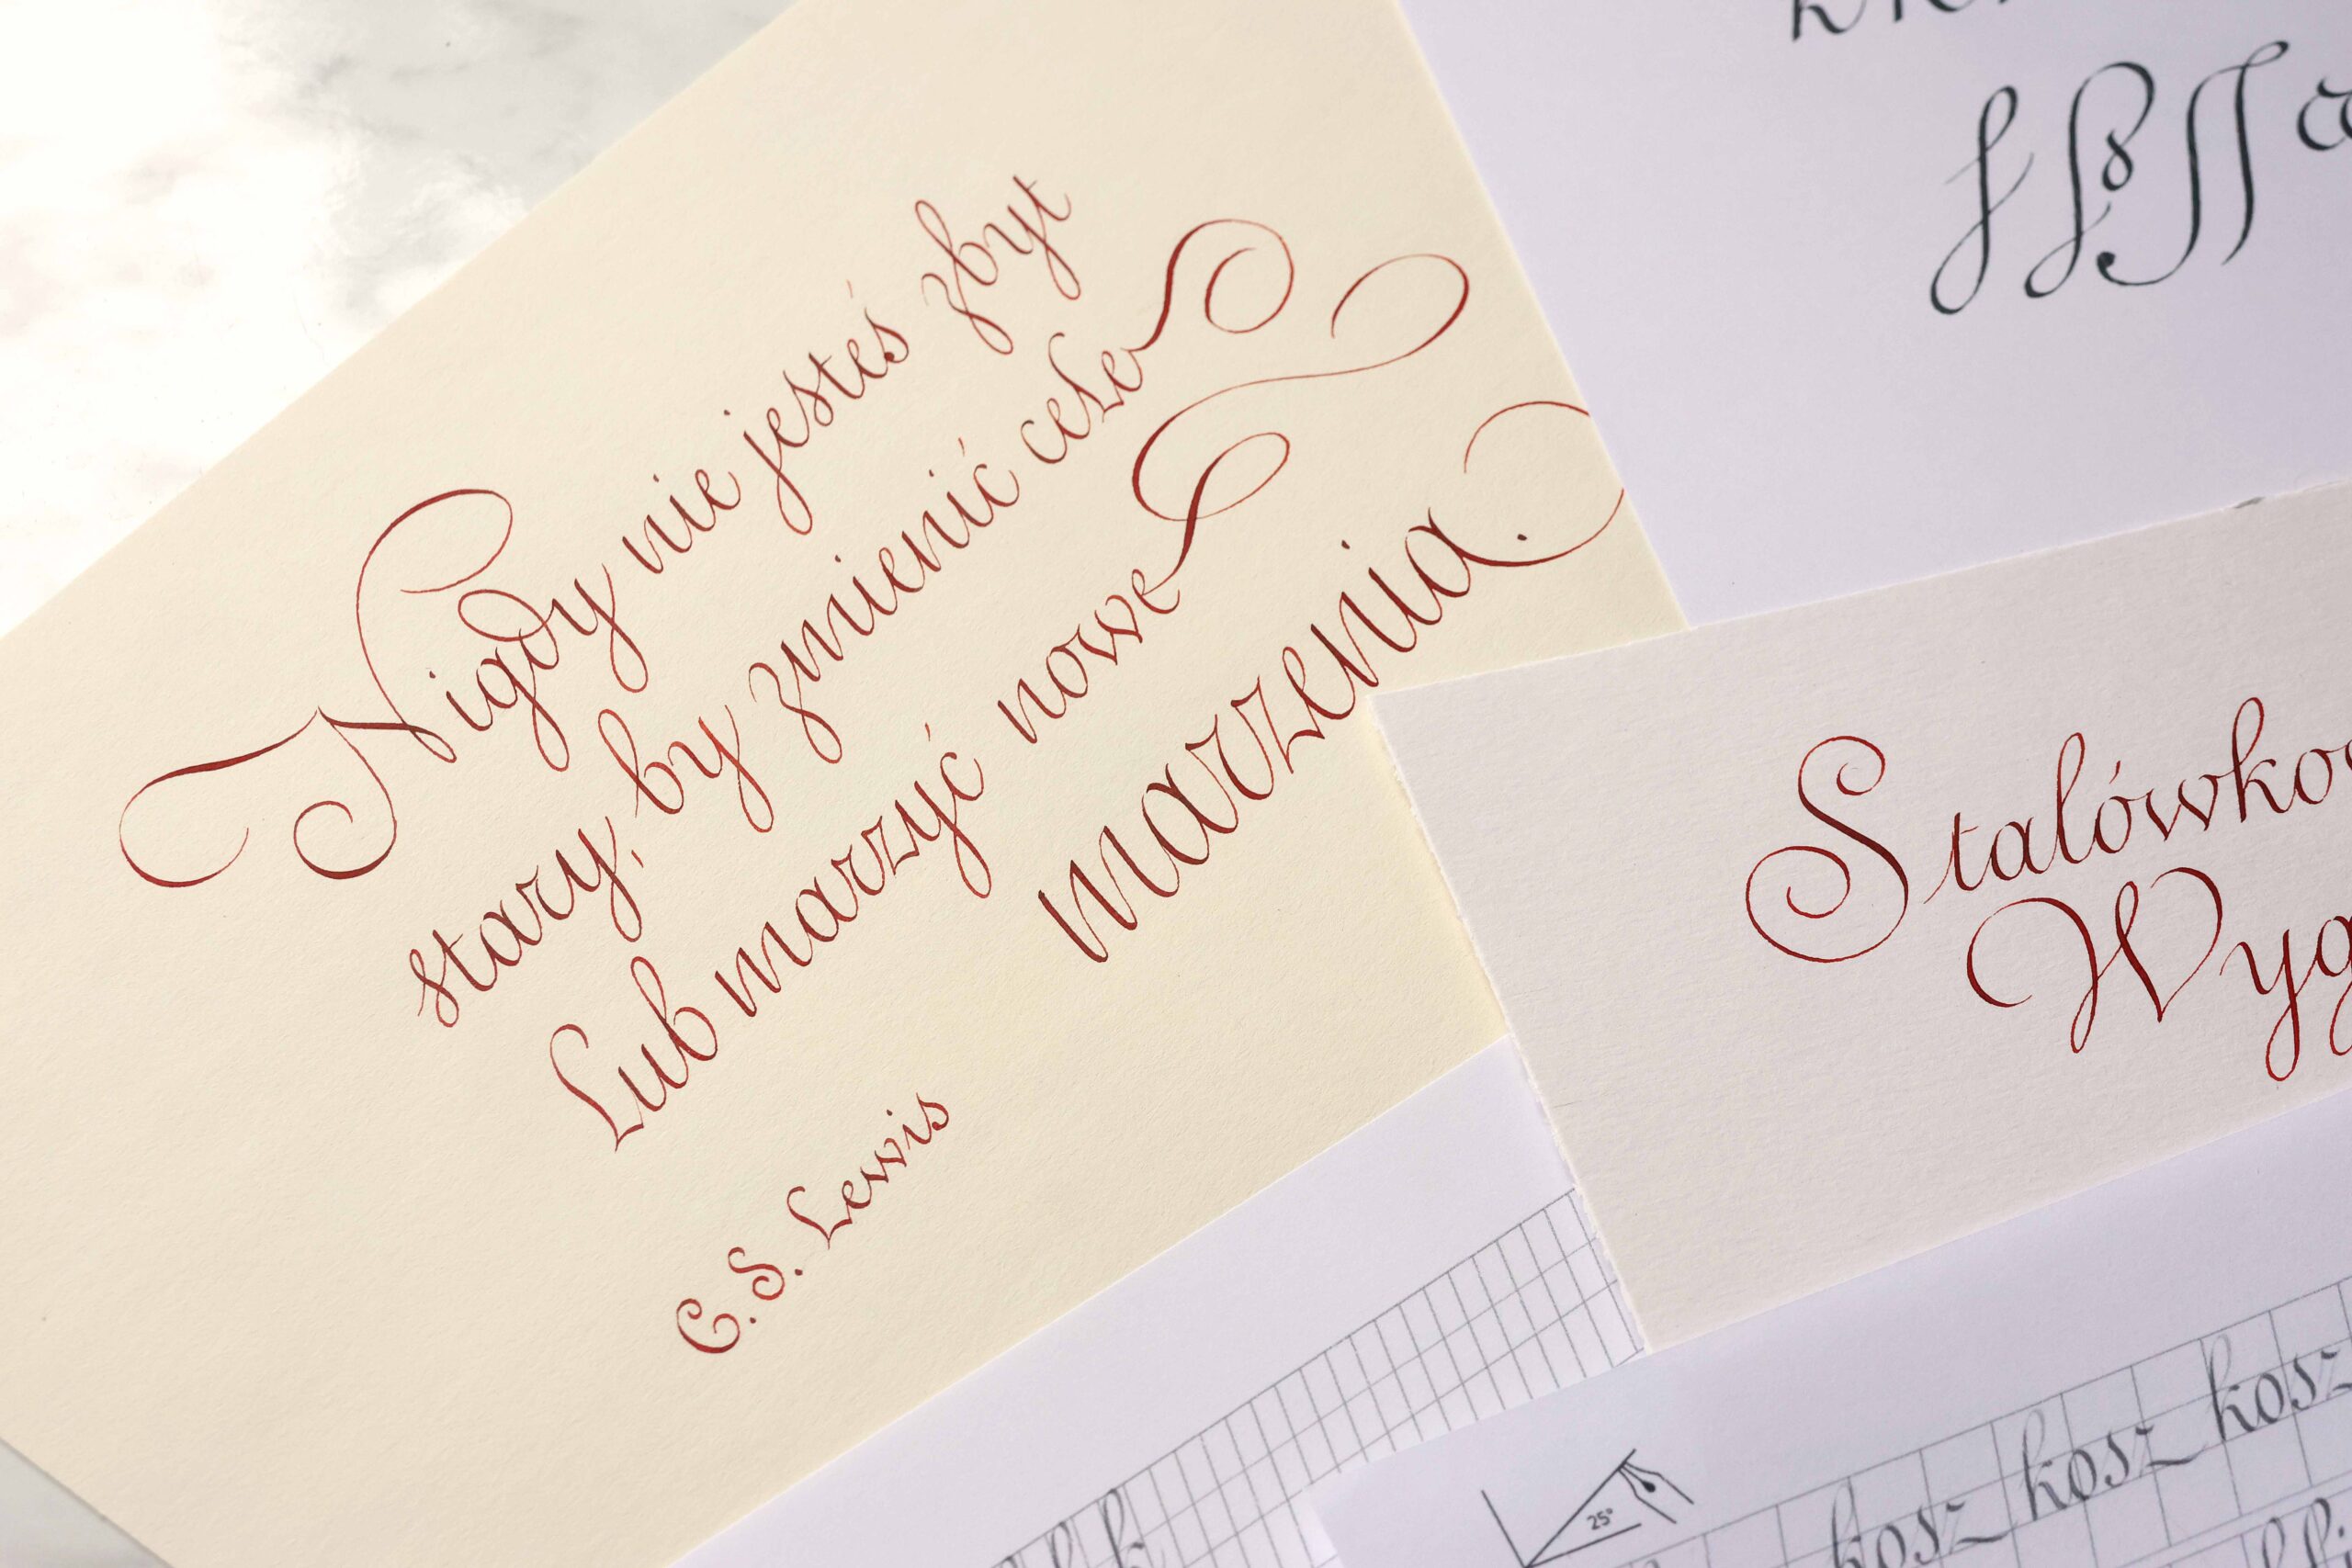 Nigdy nie jesteś zbyt
stary, by zmienić cele
lub marzyć nowe
marzenia.
C.S. Lewis
25°
kosz kosz kosz